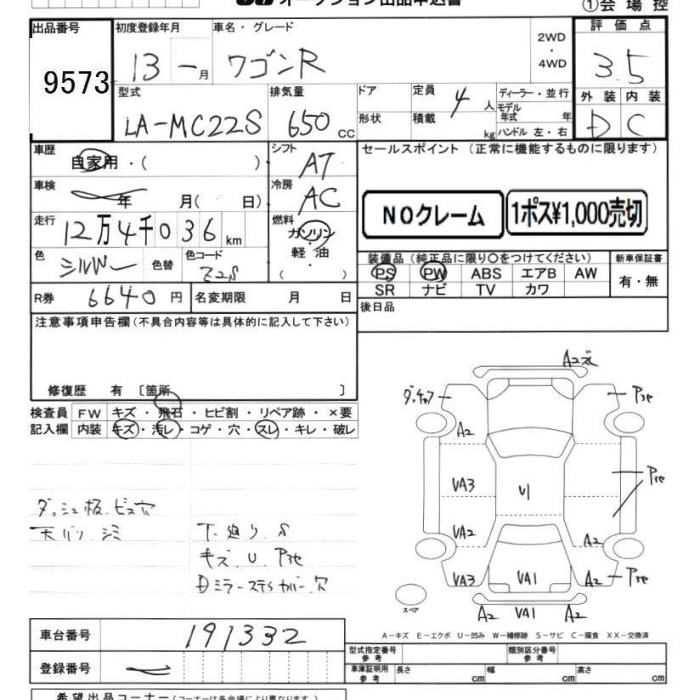 オークション出品申込書
①会場控
出品番号 9573
初度登録年月 13 年 1 月
車名・グレード ワゴンR
2WD ・ 4WD
評価点 3.5
外装 D 内装 C
型式 LA-MC22S
排気量 650 CC
ドア
形状
定員 4 人
積載 kg
ディーラー・並行
モデル年式 年
ハンドル 左・右
車歴 自家用・( )
シフト AT
車検 年 月( 日)
冷房 AC
走行 12万4千036 km
燃料 ガソリン
軽油
( )
色 シルバー 色替
色コード Z2S
R券 6640 円
名変期限 月 日
セールスポイント (正常に機能するものに限ります)
NOクレーム
1ポス¥1,000売切
装備品 (純正品に限り○をつけてください)
PS PW ABS エアB AW
SR ナビ TV カワ
新車保証書
有・無
後日品
注意事項申告欄 (不具合内容等は具体的に記入して下さい)
修復歴 有 [箇所 ]
検査員 FW キズ・飛石・ヒビ割・リペア跡・×要
記入欄 内装 キズ・汚レ・コゲ・穴・スレ・キレ・破レ
ダッシュ板.ビス穴
天バリ シミ
下廻り S
キズ U P3セ
Dミラーステイカバー穴
A2 P3セ
A2
VA3 U1 P3セ
VA2 A2
VA3 VA1 A2 P3セ
A2 VA1 A2
スペア
A-キズ E-エクボ U-凹み W-補修跡 S-サビ C-腐食 XX-交換済
車台番号 191332
登録番号
型式指定番号 参考
類別区分番号 参考
車庫証明用 参考 長さ cm 幅 cm 高さ cm
希望出品コーナー